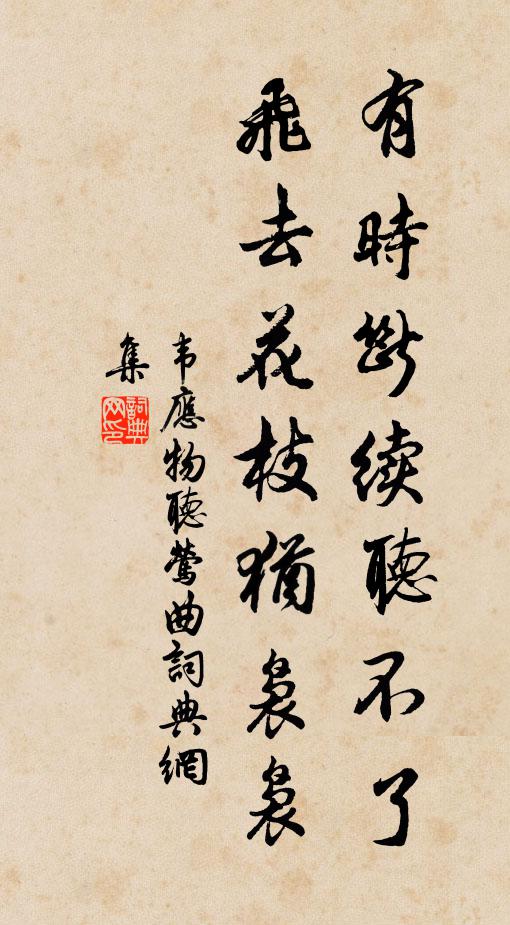 有時斷續聽不了
飛去花枝猶裊裊
韦應物聽鶯曲詞典網
集
詞典網印